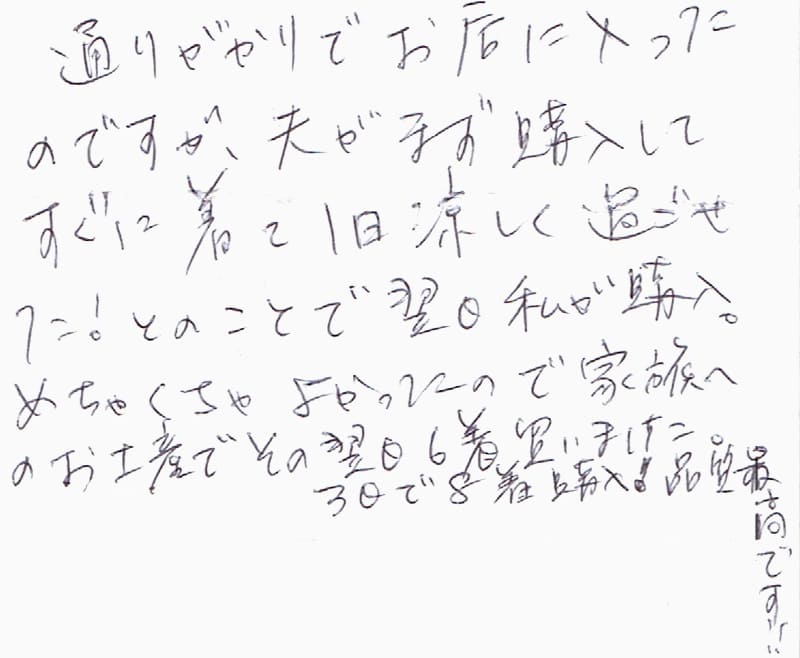 通りがかりでお店に入った
のですが、夫がまず購入して
すぐに着て1日涼しく過ごせ
た！とのことで翌日私が購入。
めちゃくちゃよかったので家族へ
のお土産でその翌日6着買いました。
3日で8着購入！品質最高です!!